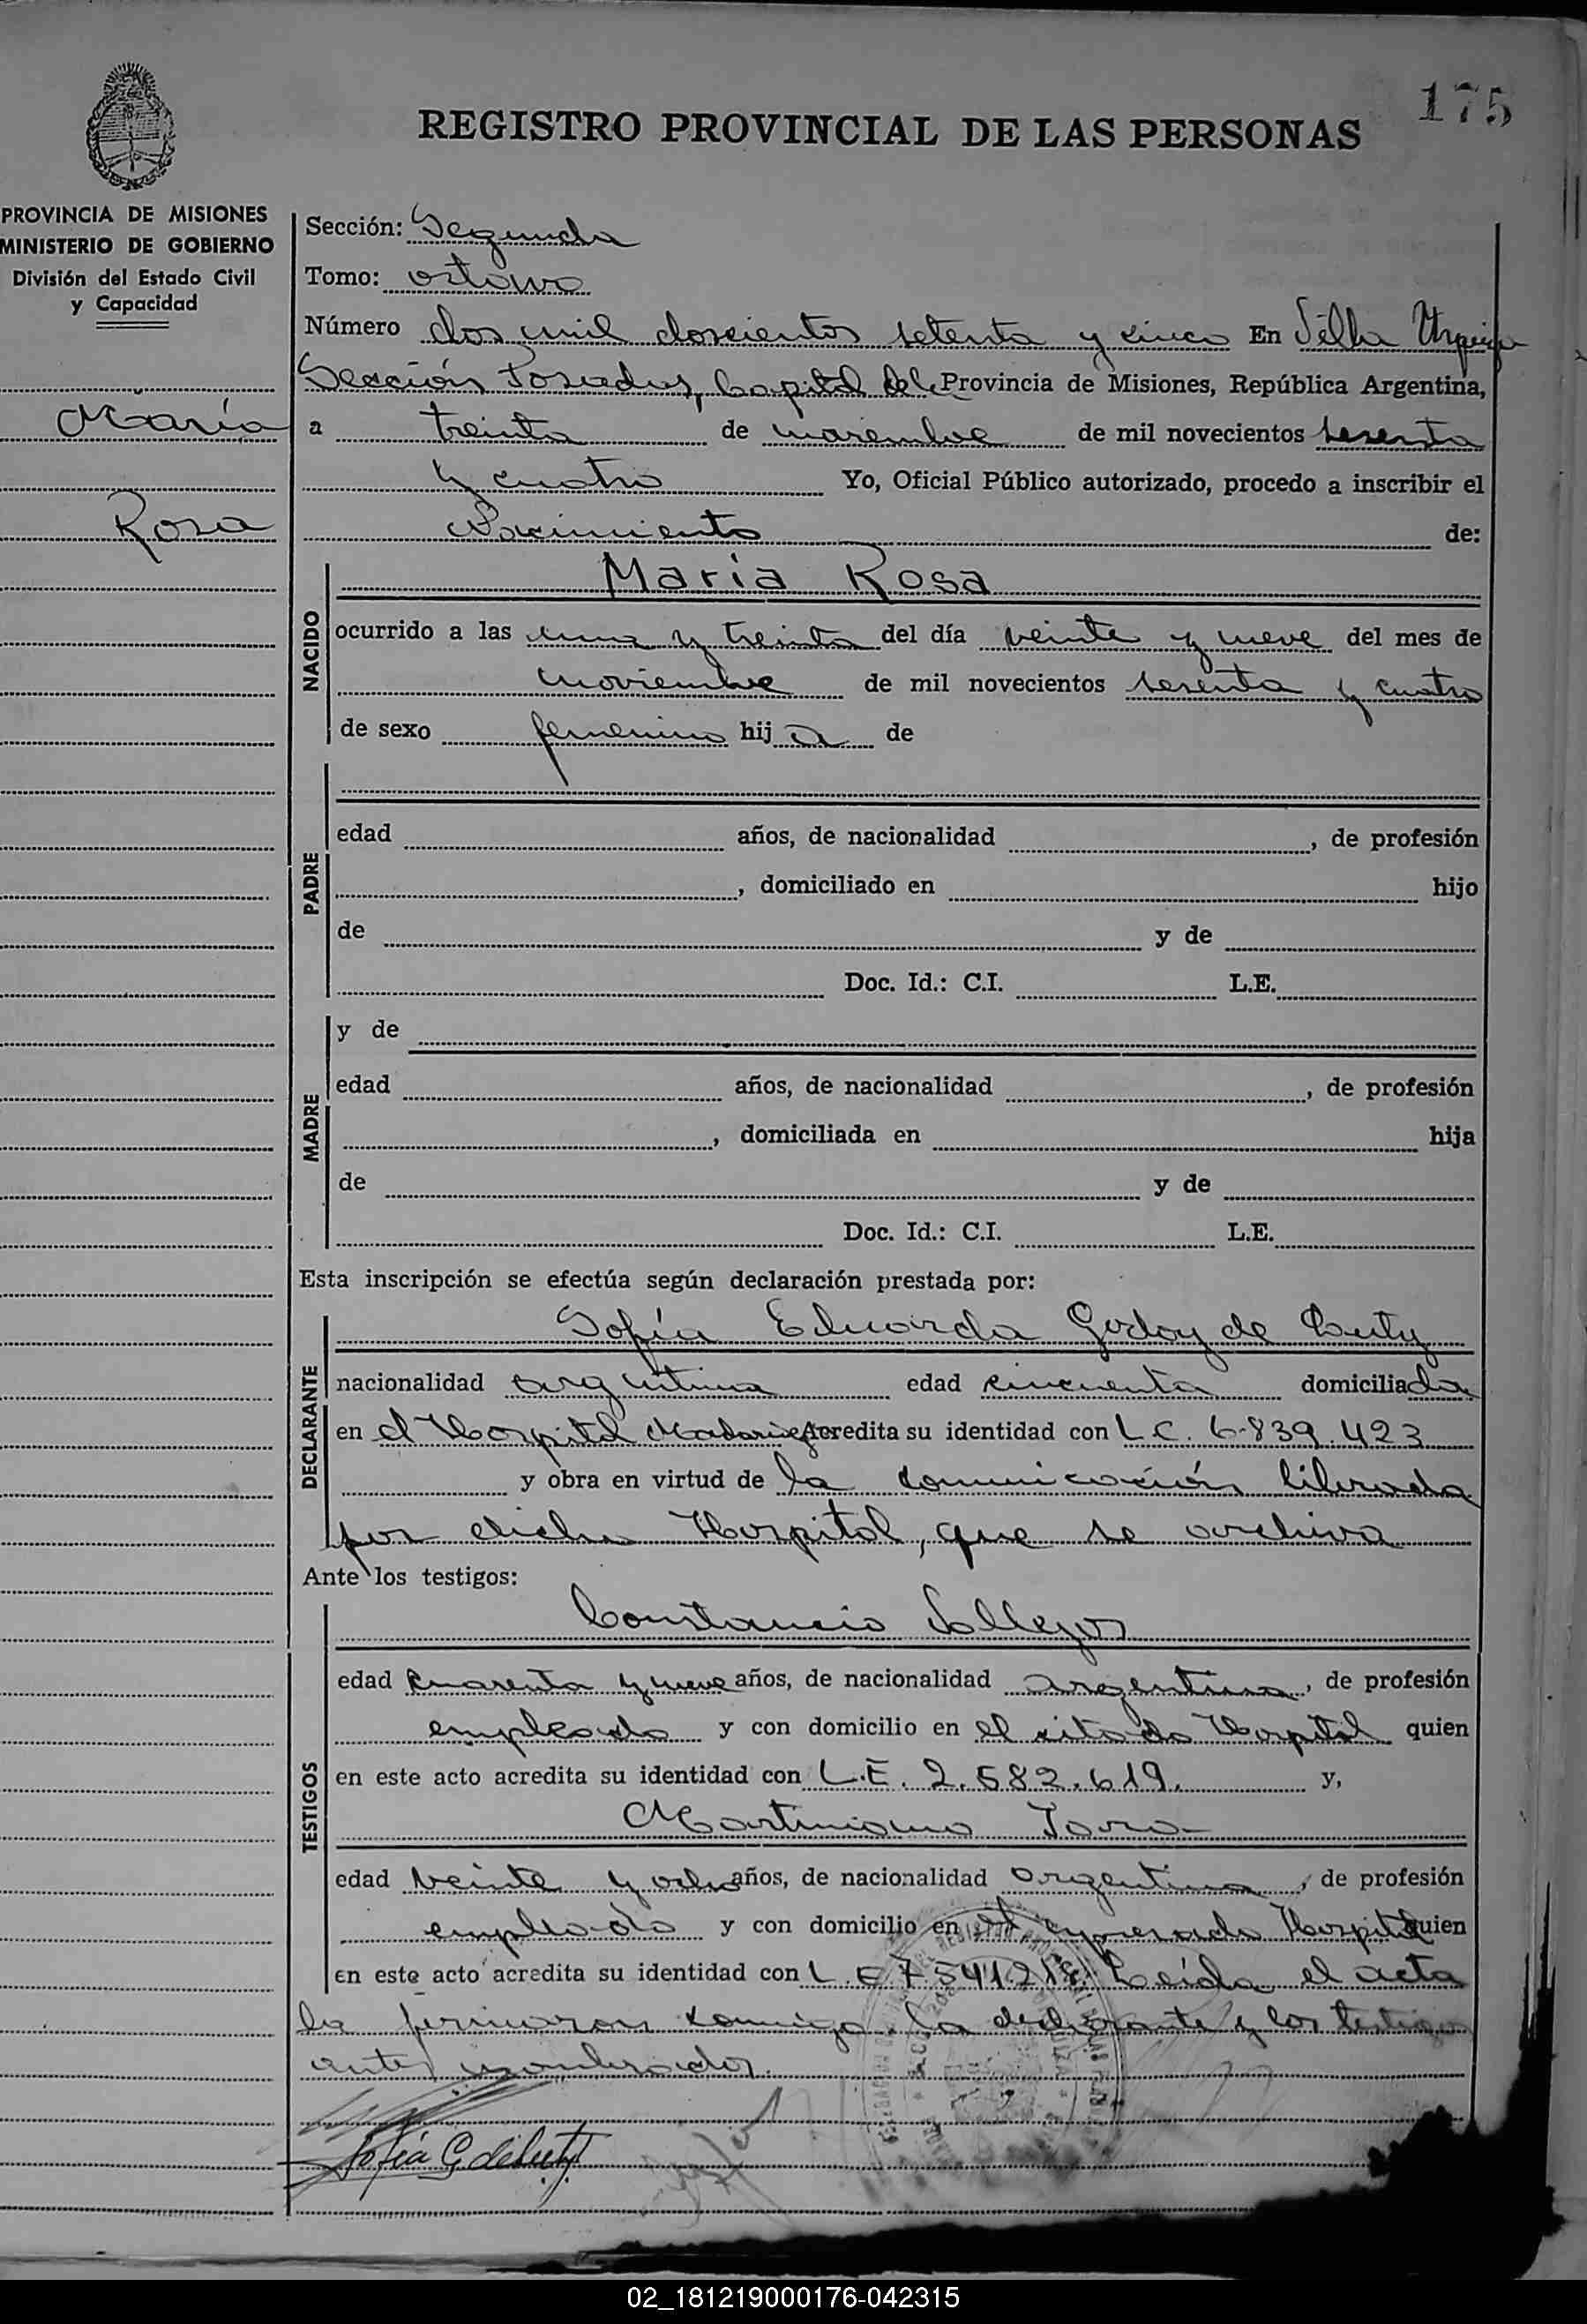 175
REGISTRO PROVINCIAL DE LAS PERSONAS
PROVINCIA DE MISIONES
MINISTERIO DE GOBIERNO
División del Estado Civil
y Capacidad
María
Rosa
Sección: Segunda
Tomo: octavo
Número dos mil doscientos setenta y cinco En Villa Urquiza
Sección Posadas, Capital de la Provincia de Misiones, República Argentina,
a treinta de noviembre de mil novecientos sesenta
y cuatro Yo, Oficial Público autorizado, procedo a inscribir el
Nacimiento de:
NACIDO
María Rosa
ocurrido a las una y treinta del día veinte y nueve del mes de
noviembre de mil novecientos sesenta y cuatro
de sexo femenino hija de
PADRE
edad años, de nacionalidad , de profesión
, domiciliado en hijo
de y de
Doc. Id.: C.I. L.E.
MADRE
y de
edad años, de nacionalidad , de profesión
, domiciliada en hija
de y de
Doc. Id.: C.I. L.E.
Esta inscripción se efectúa según declaración prestada por:
DECLARANTE
Sofía Eduarda Godoy de
nacionalidad argentina edad cincuenta domiciliada
en el Hospital Madariaga Acredita su identidad con L.C. 6.839.423
y obra en virtud de la comunicación librada
por dicho Hospital, que se archiva
Ante los testigos:
TESTIGOS
Constancio Vallejos
edad cuarenta y nueve años, de nacionalidad argentina, de profesión
empleado y con domicilio en el citado Hospital quien
en este acto acredita su identidad con L.E. 2.582.619. y,
Martiniano
edad veinte y ocho años, de nacionalidad argentina, de profesión
empleado y con domicilio en el expresado Hospital quien
en este acto acredita su identidad con L.E 7.541.218. Leída el acta
la firmaron conmigo la declarante y los testigos
antes nombrados.
Sofía G de
02_181219000176-042315